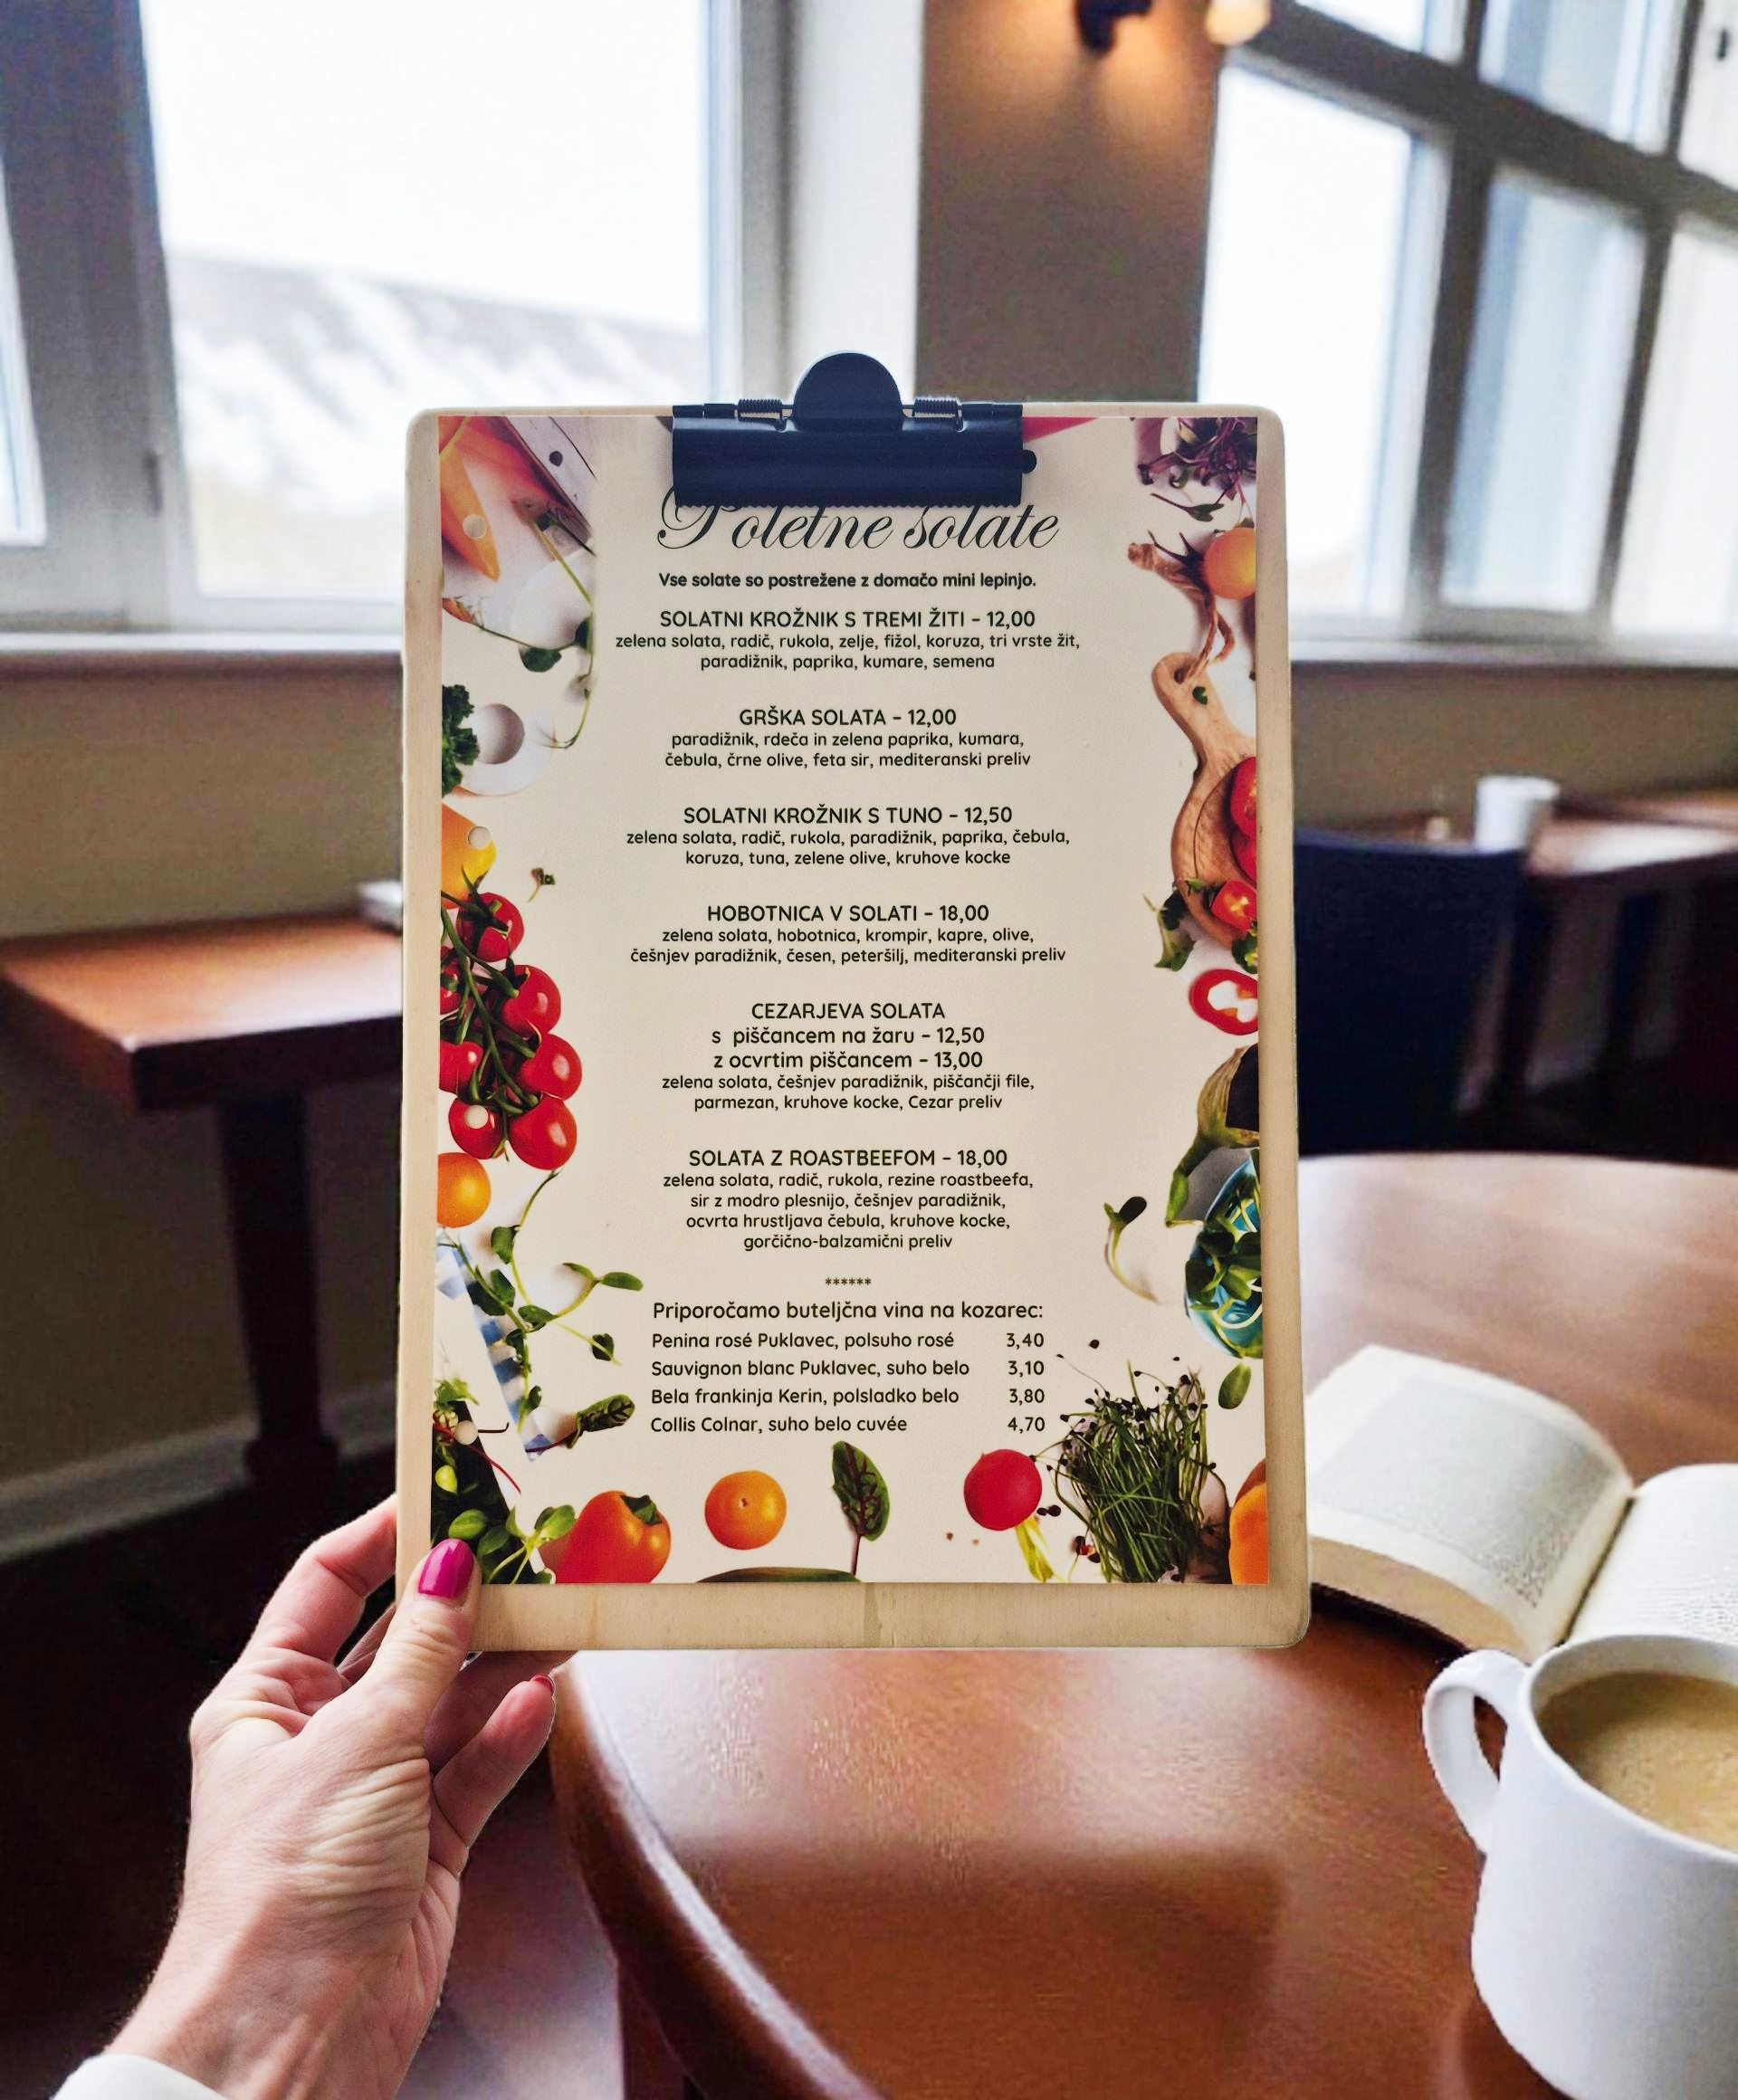 Poletne solate
Vse solate so postrežene z domačo mini lepinjo.
SOLATNI KROŽNIK S TREMI ŽITI – 12,00
zelena solata, radič, rukola, zelje, fižol, koruza, tri vrste žit,
paradižnik, paprika, kumare, semena
GRŠKA SOLATA – 12,00
paradižnik, rdeča in zelena paprika, kumara,
čebula, črne olive, feta sir, mediteranski preliv
SOLATNI KROŽNIK S TUNO – 12,50
zelena solata, radič, rukola, paradižnik, paprika, čebula,
koruza, tuna, zelene olive, kruhove kocke
HOBOTNICA V SOLATI – 18,00
zelena solata, hobotnica, krompir, kapre, olive,
češnjev paradižnik, česen, peteršilj, mediteranski preliv
CEZARJEVA SOLATA
s piščancem na žaru – 12,50
z ocvrtim piščancem – 13,00
zelena solata, češnjev paradižnik, piščančji file,
parmezan, kruhove kocke, Cezar preliv
SOLATA Z ROASTBEEFOM – 18,00
zelena solata, radič, rukola, rezine roastbeefa,
sir z modro plesnijo, češnjev paradižnik,
ocvrta hrustljava čebula, kruhove kocke,
gorčično-balzamični preliv
******
Priporočamo buteljčna vina na kozarec:
Penina rosé Puklavec, polsuho rosé 3,40
Sauvignon blanc Puklavec, suho belo 3,10
Bela frankinja Kerin, polsladko belo 3,80
Collis Colnar, suho belo cuvée 4,70